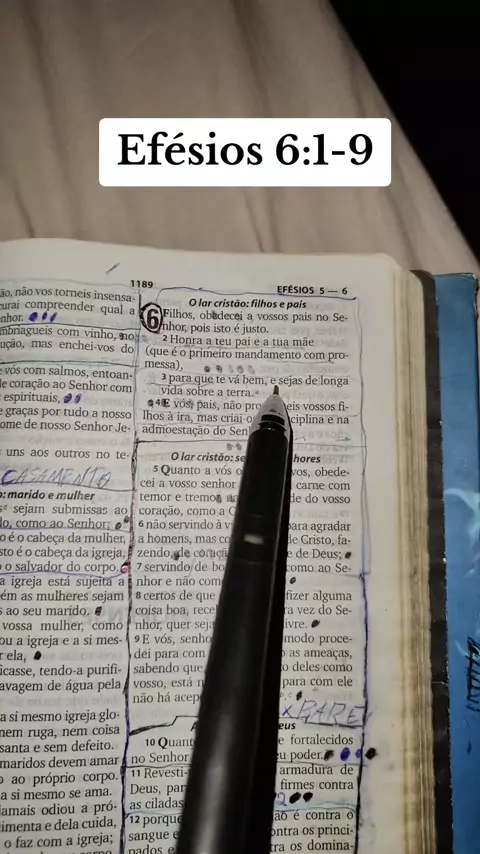 Efésios 6:1-9
1189
EFÉSIOS 5 — 6
ão, não vos torneis insensa-
curai compreender qual a
nhor.
mbriagueis com vinho, no
ução, mas enchei-vos do
e vós com salmos, entoan-
de coração ao Senhor com
espirituais,
e graças por tudo a nosso
ome de nosso Senhor Je-
uns aos outros no te-
CASAMENTO
o: marido e mulher
sejam submissas ao
do, como ao Senhor;
o é o cabeça da mulher,
sto é o cabeça da igreja,
o salvador do corpo.
a igreja está sujeita a
ém as mulheres sejam
s ao seu marido.
vossa mulher, como
ou a igreja e a si mes-
r ela,
icasse, tendo-a purifi-
avagem de água pela
a si mesmo igreja glo-
nem ruga, nem coisa
santa e sem defeito.
maridos devem amar
o ao próprio corpo.
a si mesmo se ama.
jamais odiou a pró-
limenta e dela cuida,
o faz com a igreja;
O lar cristão: filhos e pais
6 Filhos, obedecei a vossos pais no Se-
nhor, pois isto é justo.
2 Honra a teu pai e a tua mãe
(que é o primeiro mandamento com pro-
messa),
3 para que te vá bem, e sejas de longa
vida sobre a terra.
4 E vós, pais, não pro eis vossos fi-
lhos à ira, mas criai-o ciplina e na
admoestação do Sen
O lar cristão: se hores
5 Quanto a vós o vos, obede-
cei a vosso senhor carne com
temor e tremo de do vosso
coração, como a C
6 não servindo à v para agradar
a homens, mas co de Cristo, fa-
zendo, de coraçã e de Deus;
7 servindo de bo como ao Se-
nhor e não como
8 certos de que fizer alguma
coisa boa, rece vez do Se-
nhor, quer seja livre.
9 E vós, senho modo proce-
dei para com as ameaças,
sabendo que deles como
vosso, está n para com ele
não há acep
PARE
eus
10 Quant e fortalecidos
no Senhor eu poder.
11 Revesti- armadura de
Deus, par firmes contra
as ciladas
12 porque ão é contra o
sangue e ontra os princi-
pados e ontra os domina-